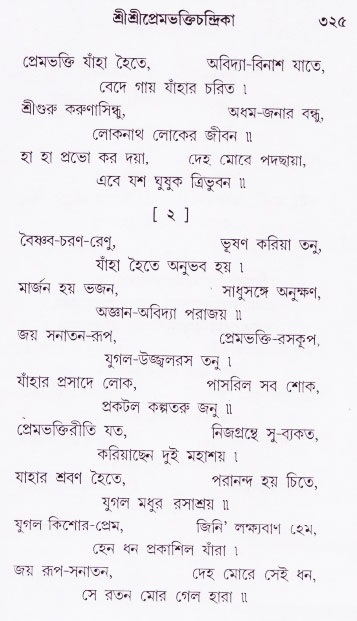 শ্রীশ্রীপ্রেমভক্তিচন্দ্রিকা ৩২৫
প্রেমভক্তি যাঁহা হৈতে, অবিদ্যা-বিনাশ যাতে,
বেদে গায় যাঁহার চরিত ।
শ্রীগুরু করুণাসিন্ধু, অধম-জনার বন্ধু,
লোকনাথ লোকের জীবন ॥
হা হা প্রভো কর দয়া, দেহ মোরে পদছায়া,
এবে যশ ঘুষুক ত্রিভুবন ॥
[ ২ ]
বৈষ্ণব-চরণ-রেণু, ভূষণ করিয়া তনু,
যাঁহা হৈতে অনুভব হয় ।
মার্জন হয় ভজন, সাধুসঙ্গে অনুক্ষণ,
অজ্ঞান-অবিদ্যা পরাজয় ॥
জয় সনাতন-রূপ, প্রেমভক্তি-রসকূপ,
যুগল-উজ্জ্বলরস তনু ।
যাঁহার প্রসাদে লোক, পাসরিল সব শোক,
প্রকটল কল্পতরু জনু ॥
প্রেমভক্তিরীতি যত, নিজগ্রন্থে সু-ব্যকত,
করিয়াছেন দুই মহাশয় ।
যাহার শ্রবণ হৈতে, পরানন্দ হয় চিতে,
যুগল মধুর রসাশ্রয় ॥
যুগল কিশোর-প্রেম, জিনি’ লক্ষ্যবাণ হেম,
হেন ধন প্রকাশিল যাঁরা ।
জয় রূপ-সনাতন, দেহ মোরে সেই ধন,
সে রতন মোর গেল হারা ॥